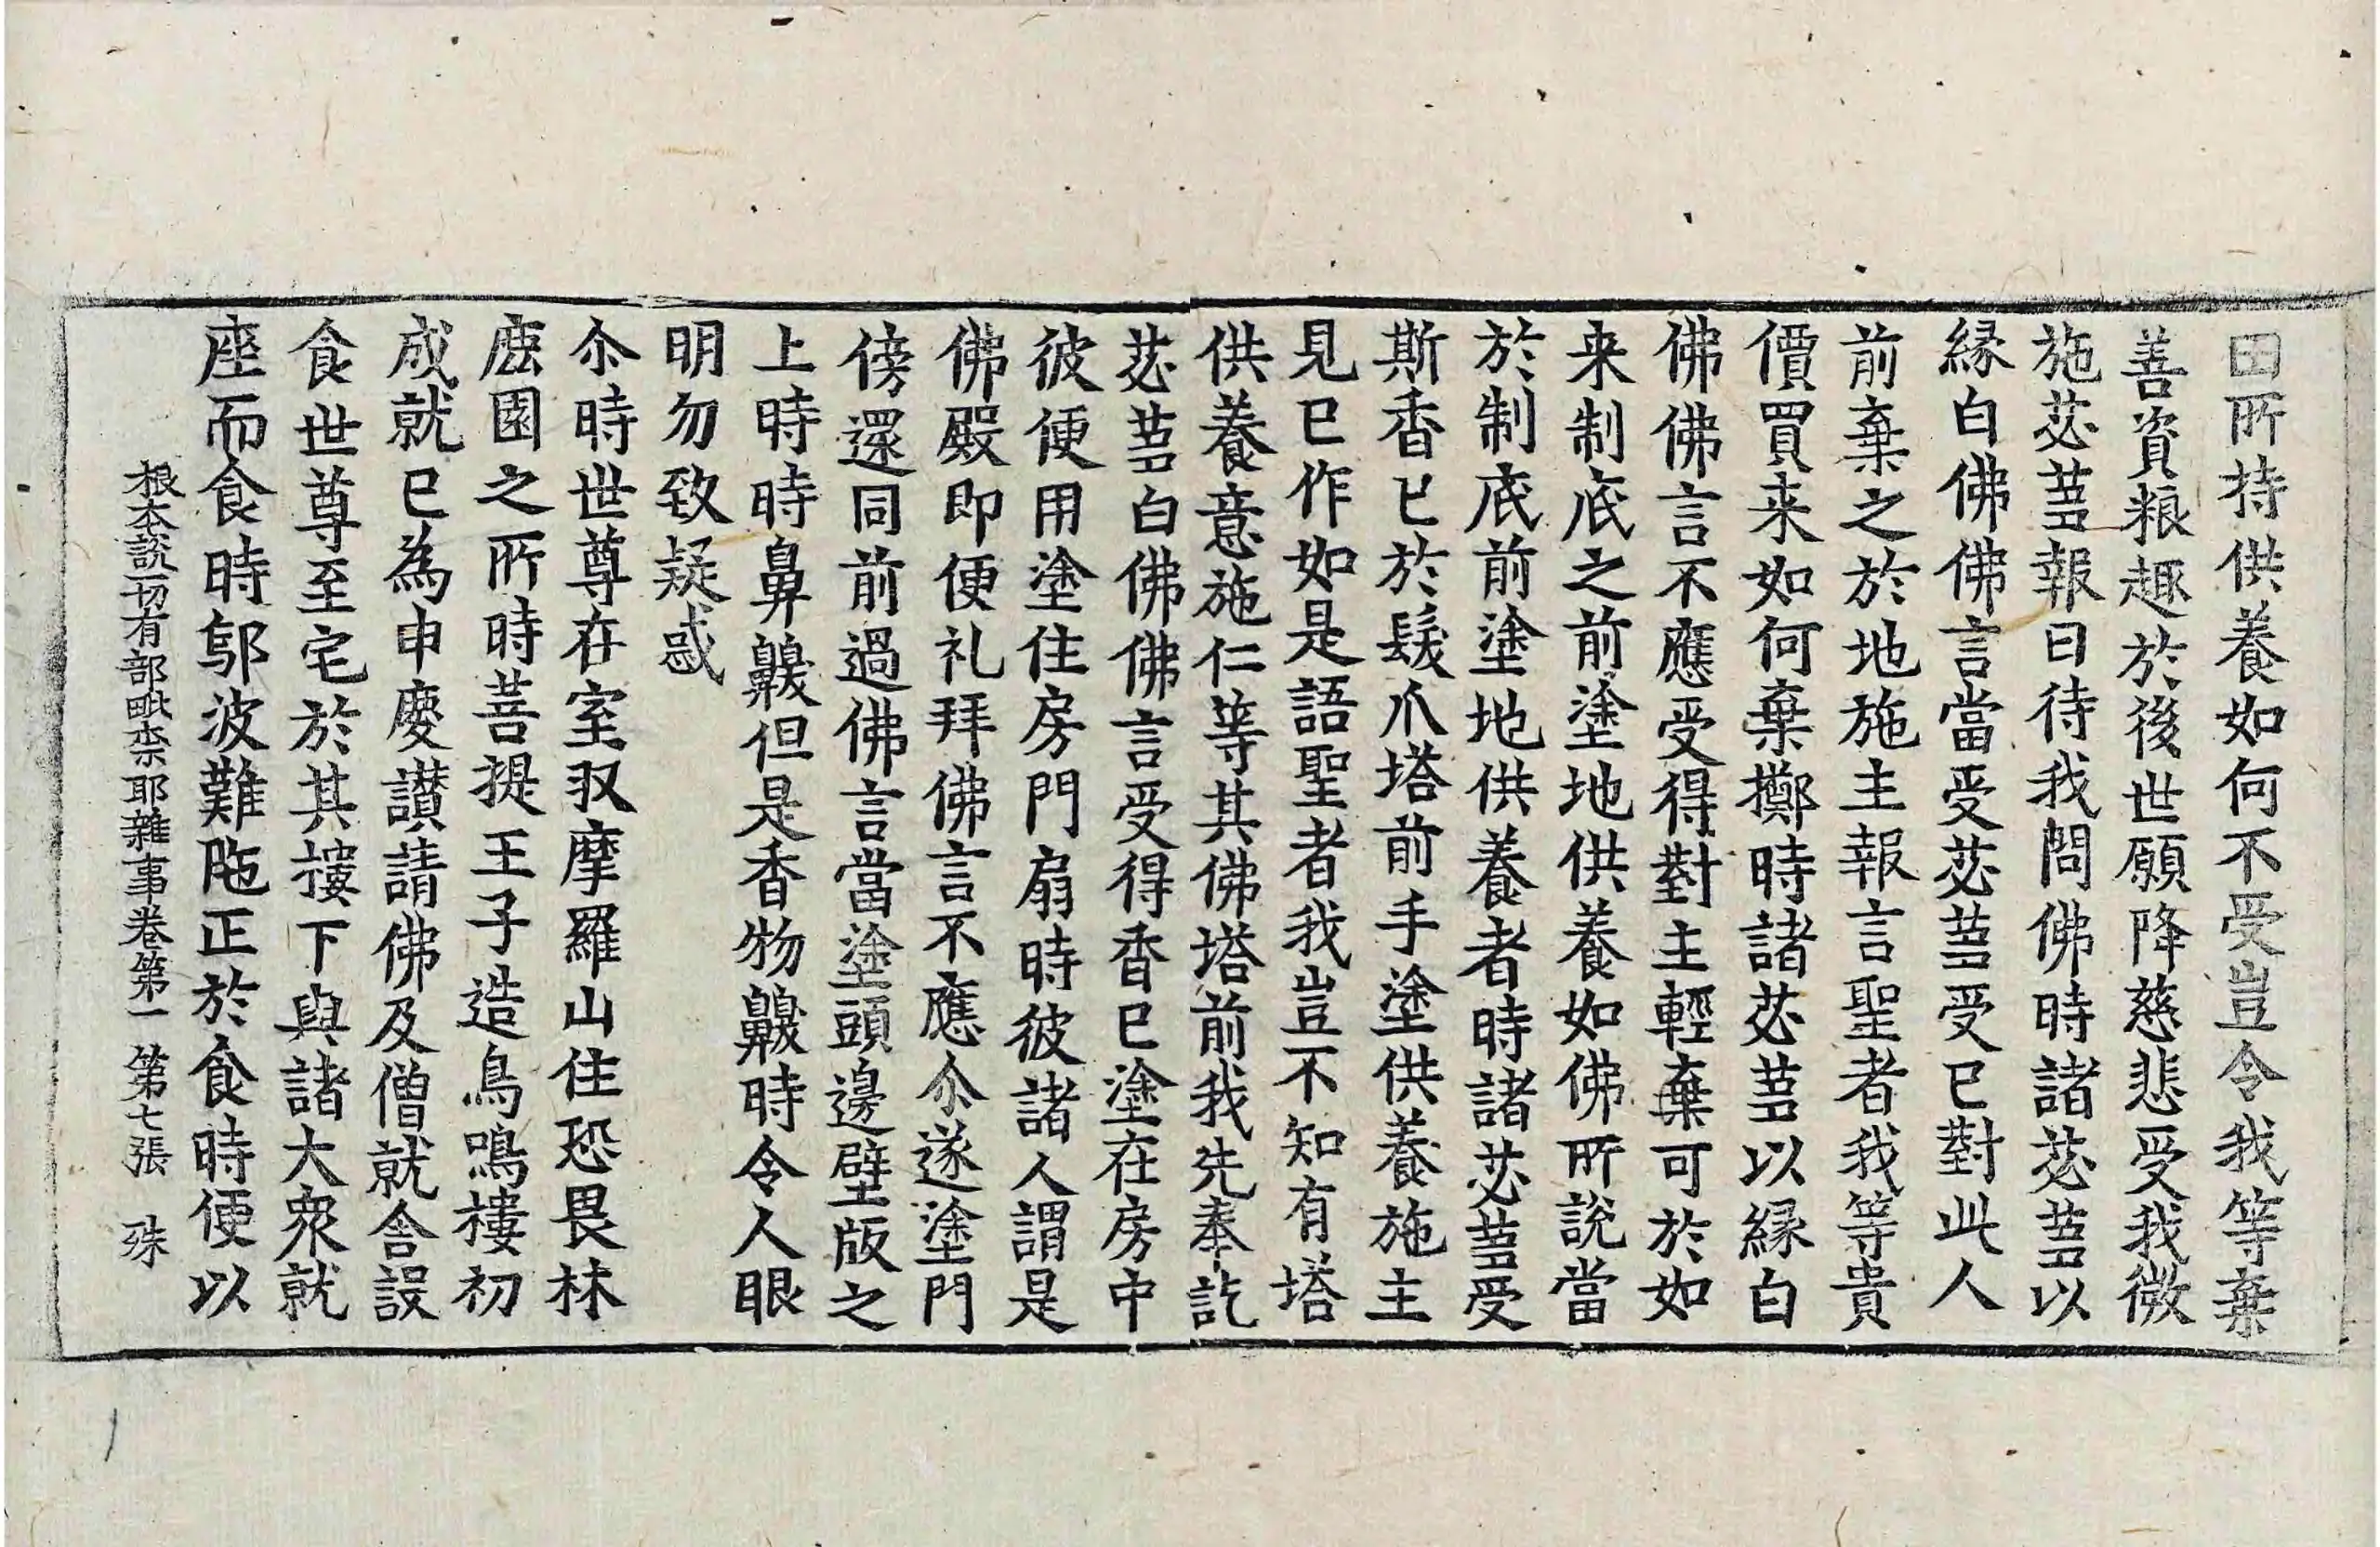 田所持供養如何不受豈令我等棄
善資粮趣於後世願降慈悲受我微
施苾芻報曰待我問佛時諸苾芻以
縁白佛佛言當受苾芻受已對此人
前棄之於地施主報言聖者我等貴
價買来如何棄擲時諸苾芻以縁白
佛佛言不應受得對主輕棄可於如
来制底之前塗地供養如佛所說當
於制底前塗地供養者時諸苾芻受
斯香已於髮爪塔前手塗供養施主
見已作如是語聖者我豈不知有塔
供養意施仁等其佛塔前我先奉訖
苾芻白佛佛言受得香已塗在房中
彼便用塗住房門扇時彼諸人謂是
佛殿即便礼拜佛言不應尒遂塗門
傍還同前過佛言當塗頭邊壁版之
上時時鼻齅但是香物齅時令人眼
明勿致疑惑
尒時世尊在室收摩羅山住恐畏林
鹿園之所時菩提王子造鳥鳴樓初
成就已為申慶讃請佛及僧就舍設
食世尊至宅於其樓下與諸大衆就
座而食時鄔波難陁正於食時便以
根本說一切有部毗柰耶雜事卷第一 第七張 殊